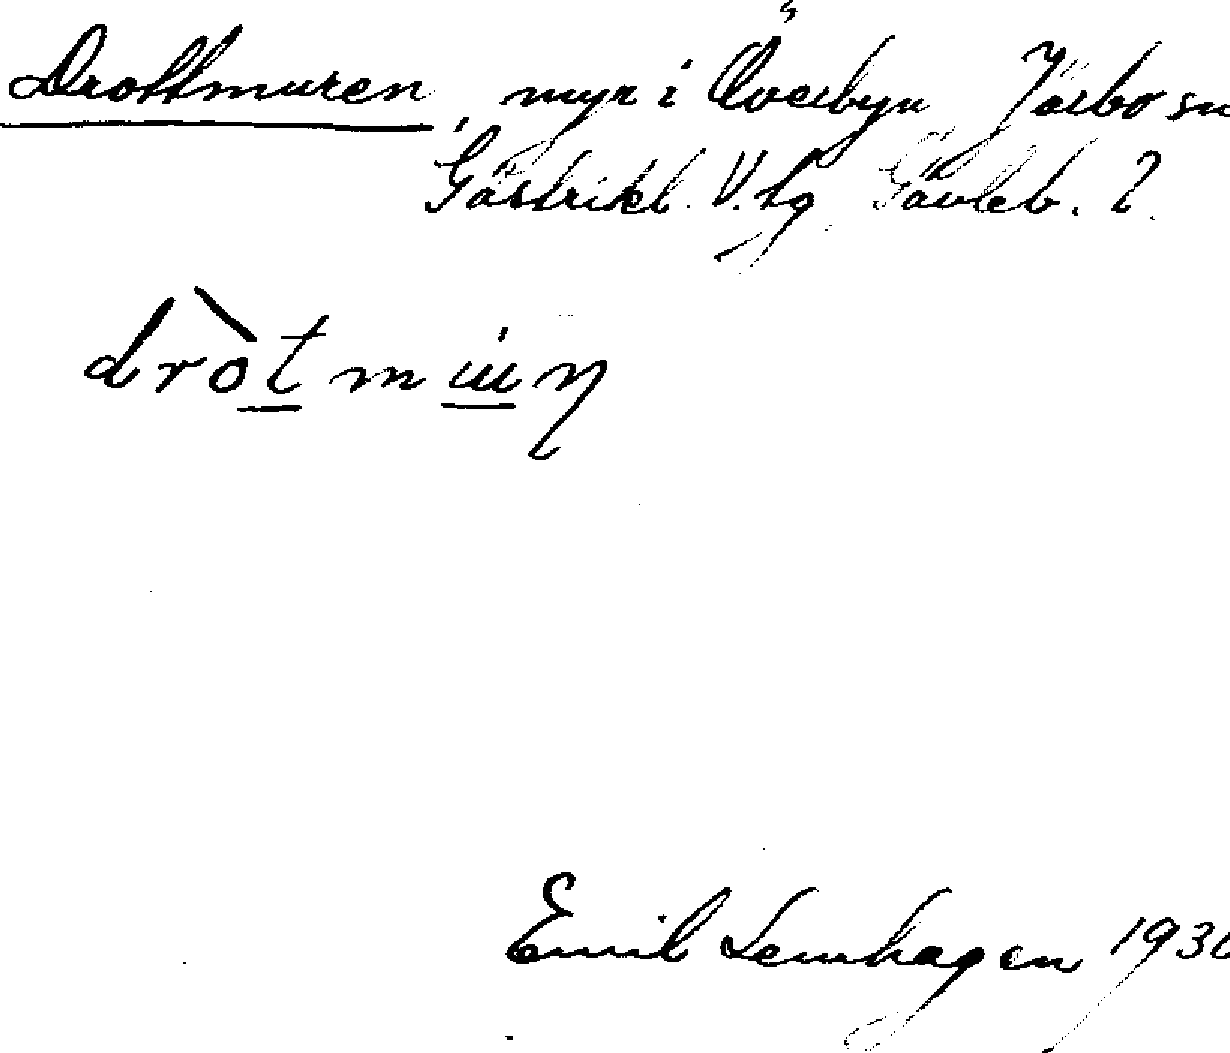 Drottmuren, myr i Överbyn Järbo sn
Gästrikl. V. tg Gävleb. l.
dròtmün
Emil Lemhagen 193